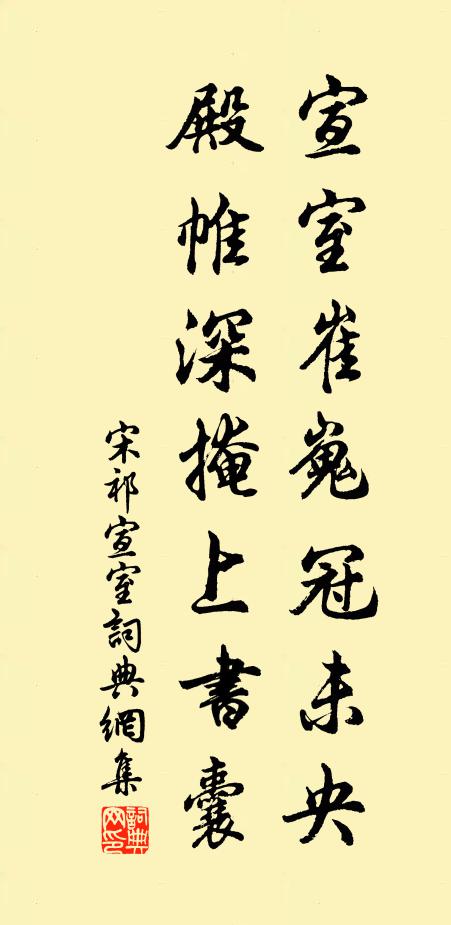 宣室崔嵬冠未央
殿帷深掩上書囊
宋祁宣室詞典網集
詞典网印